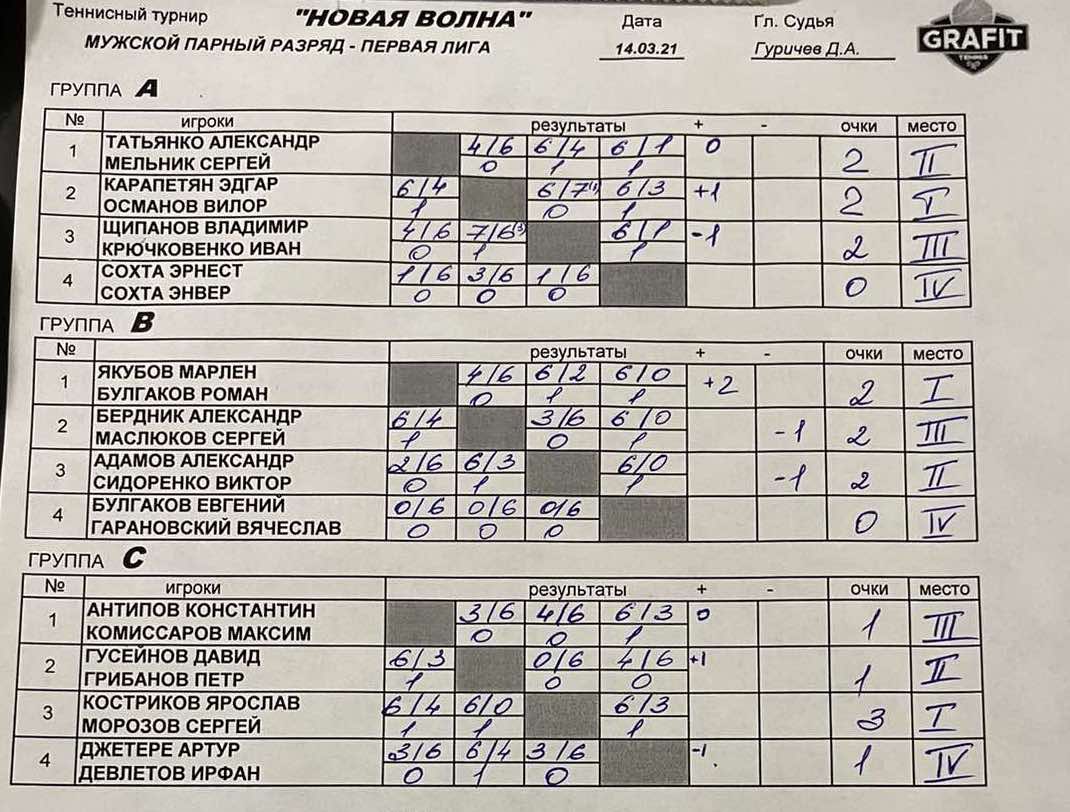 Теннисный турнир "НОВАЯ ВОЛНА" Дата Гл. Судья
МУЖСКОЙ ПАРНЫЙ РАЗРЯД - ПЕРВАЯ ЛИГА 14.03.21 Гуричев Д.А.
GRAFIT
TENNIS
ГРУППА A
№ игроки результаты + - очки место
1 ТАТЬЯНКО АЛЕКСАНДР 4/6 6/4 6/1 0 2 II
МЕЛЬНИК СЕРГЕЙ 0 1 1
2 КАРАПЕТЯН ЭДГАР 6/4 6/7 6/3 +1 2 I
ОСМАНОВ ВИЛОР 1 0 1
3 ЩИПАНОВ ВЛАДИМИР 4/6 7/6(3) 6/1 -1 2 III
КРЮЧКОВЕНКО ИВАН 0 1 1
4 СОХТА ЭРНЕСТ 1/6 3/6 1/6 0 IV
СОХТА ЭНВЕР 0 0 0
ГРУППА B
№ результаты + - очки место
1 ЯКУБОВ МАРЛЕН 4/6 6/2 6/0 +2 2 I
БУЛГАКОВ РОМАН 0 1 1
2 БЕРДНИК АЛЕКСАНДР 6/4 3/6 6/0 -1 2 III
МАСЛЮКОВ СЕРГЕЙ 1 0 1
3 АДАМОВ АЛЕКСАНДР 2/6 6/3 6/0 -1 2 II
СИДОРЕНКО ВИКТОР 0 1 1
4 БУЛГАКОВ ЕВГЕНИЙ 0/6 0/6 0/6 0 IV
ГАРАНОВСКИЙ ВЯЧЕСЛАВ 0 0 0
ГРУППА C
№ игроки результаты + - очки место
1 АНТИПОВ КОНСТАНТИН 3/6 4/6 6/3 0 1 III
КОМИССАРОВ МАКСИМ 0 0 1
2 ГУСЕЙНОВ ДАВИД 6/3 0/6 4/6 +1 1 II
ГРИБАНОВ ПЕТР 1 0 0
3 КОСТРИКОВ ЯРОСЛАВ 6/4 6/0 6/3 3 I
МОРОЗОВ СЕРГЕЙ 1 1 1
4 ДЖЕТЕРЕ АРТУР 3/6 6/4 3/6 -1 1 IV
ДЕВЛЕТОВ ИРФАН 0 1 0